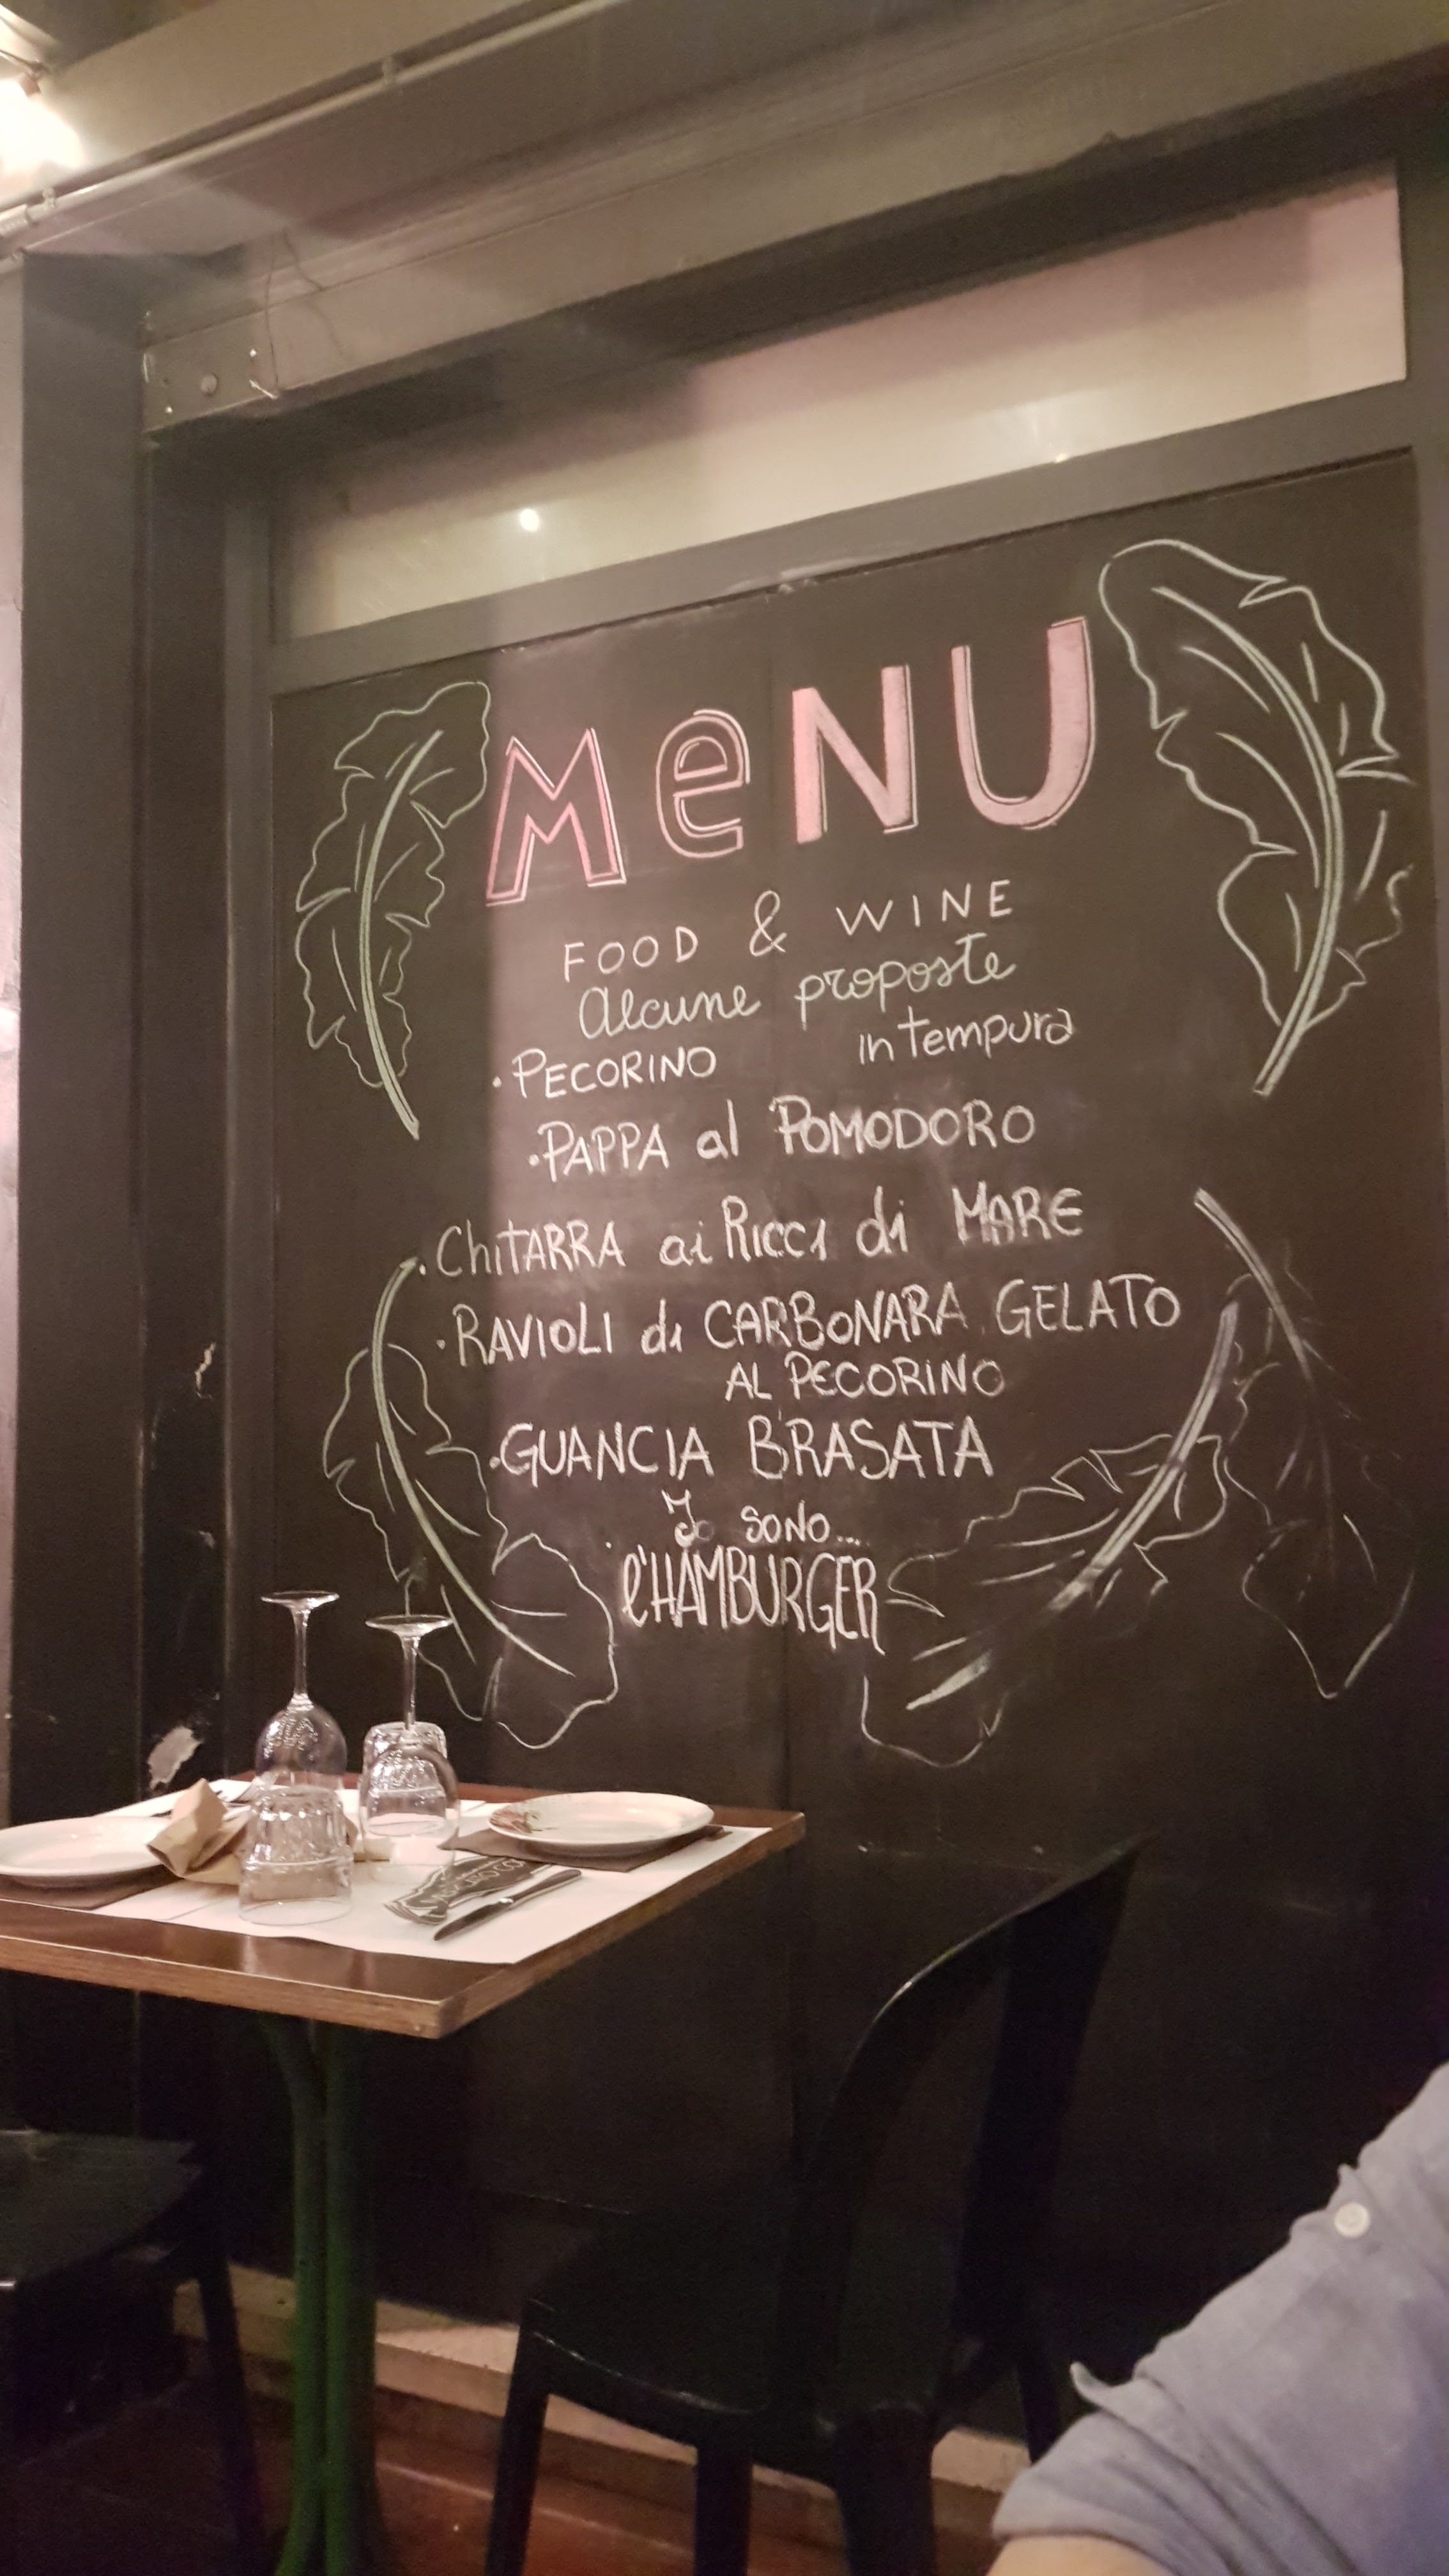 MeNU
FOOD & WINE
Alcune proposte
• PECORINO in tempura
• PAPPA al POMODORO
• ChiTARRA ai Ricci di MARE
• RAVIOLI di CARBONARA GELATO
AL PECORINO
• GUANCIA BRASATA
• Io SONO...
l'HAMBURGER